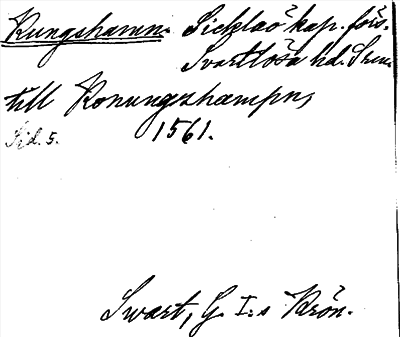 Kungshamn. Sicklaö kap. förs.
Svartlösa hd. Sthm.
till Konungzhampn,
Sid. 5. 1561.
Swart, G. I:s Krön.